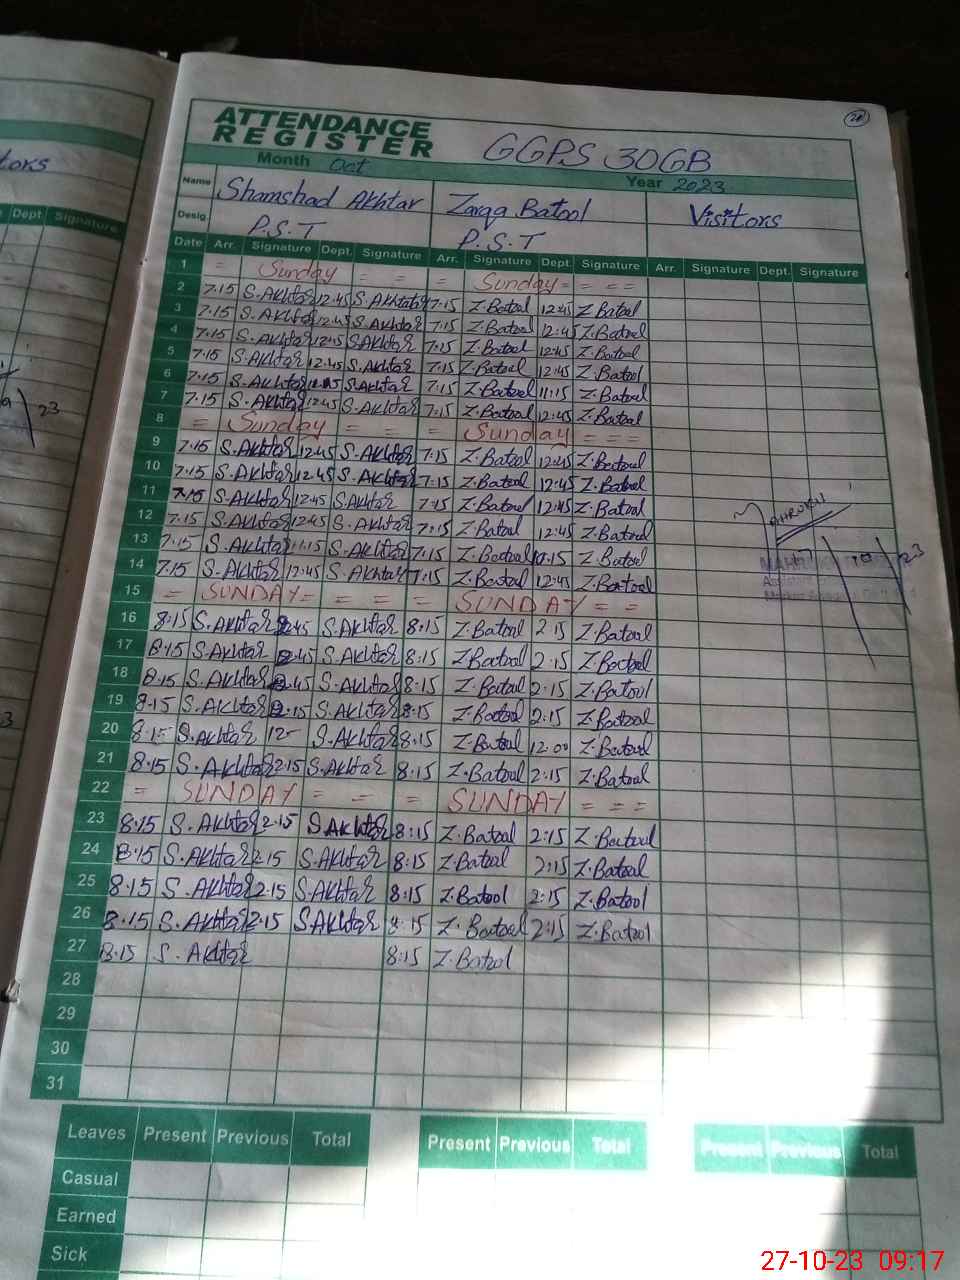 ATTENDANCE
REGISTER
GGPS 30GB
Month Oct
Year 2023
Name Shamshad Akhtar Zarqa Batool Visitors
Desig. P.S.T P.S.T
Date Arr. Signature Dept. Signature Arr. Signature Dept. Signature Arr. Signature Dept. Signature
1 = Sunday = = = Sunday = = =
2 7.15 S.Akhtar 12.45 S.Akhtar 7.15 Z.Batool 12:45 Z.Batool
3 7.15 S.Akhtar 12.45 S.Akhtar 7.15 Z.Batool 12:45 Z.Batool
4 7.15 S.Akhtar 12.45 S.Akhtar 7:15 Z.Batool 12:45 Z.Batool
5 7.15 S.Akhtar 12.45 S.Akhtar 7.15 Z.Batool 12:45 Z.Batool
6 7.15 S.Akhtar S.Akhtar 7.15 Z.Batool 11:15 Z.Batool
7 7.15 S.Akhtar 12.45 S.Akhtar 7:15 Z.Batool 12:45 Z.Batool
8 = Sunday = = = Sunday = = =
9 7.15 S.Akhtar 12.45 S.Akhtar 7.15 Z.Batool 12:45 Z.Batool
10 7.15 S.Akhtar 12.45 S.Akhtar 7.15 Z.Batool 12:45 Z.Batool
11 7.15 S.Akhtar 12.45 S.Akhtar 7:15 Z.Batool 12:45 Z.Batool
12 7.15 S.Akhtar 12.45 S.Akhtar 7:15 Z.Batool 12:45 Z.Batool
13 7.15 S.Akhtar 11.15 S.Akhtar 7.15 Z.Batool Z.Batool
14 7.15 S.Akhtar 12.45 S.Akhtar 7:15 Z.Batool 12:45 Z.Batool
15 = SUNDAY = = = = SUNDAY = =
16 8.15 S.Akhtar S.Akhtar 8:15 Z.Batool 2:15 Z.Batool
17 8.15 S.Akhtar S.Akhtar 8:15 Z.Batool 2:15 Z.Batool
18 8.15 S.Akhtar S.Akhtar 8:15 Z.Batool 2:15 Z.Batool
19 8.15 S.Akhtar 2.15 S.Akhtar 8:15 Z.Batool 2:15 Z.Batool
20 8.15 S.Akhtar 12- S.Akhtar 8:15 Z.Batool 12:00 Z.Batool
21 8.15 S.Akhtar 2.15 S.Akhtar 8:15 Z.Batool 2:15 Z.Batool
22 = SUNDAY = = = SUNDAY = = =
23 8.15 S.Akhtar 2.15 S.Akhtar 8:15 Z.Batool 2:15 Z.Batool
24 8.15 S.Akhtar 2.15 S.Akhtar 8:15 Z.Batool 2:15 Z.Batool
25 8.15 S.Akhtar 2.15 S.Akhtar 8:15 Z.Batool 2:15 Z.Batool
26 8.15 S.Akhtar 2.15 S.Akhtar 8:15 Z.Batool 2:15 Z.Batool
27 8.15 S.Akhtar 8:15 Z.Batool
28
29
30
31
Leaves Present Previous Total Present Previous Total Present Previous Total
Casual
Earned
Sick
27-10-23 09:17